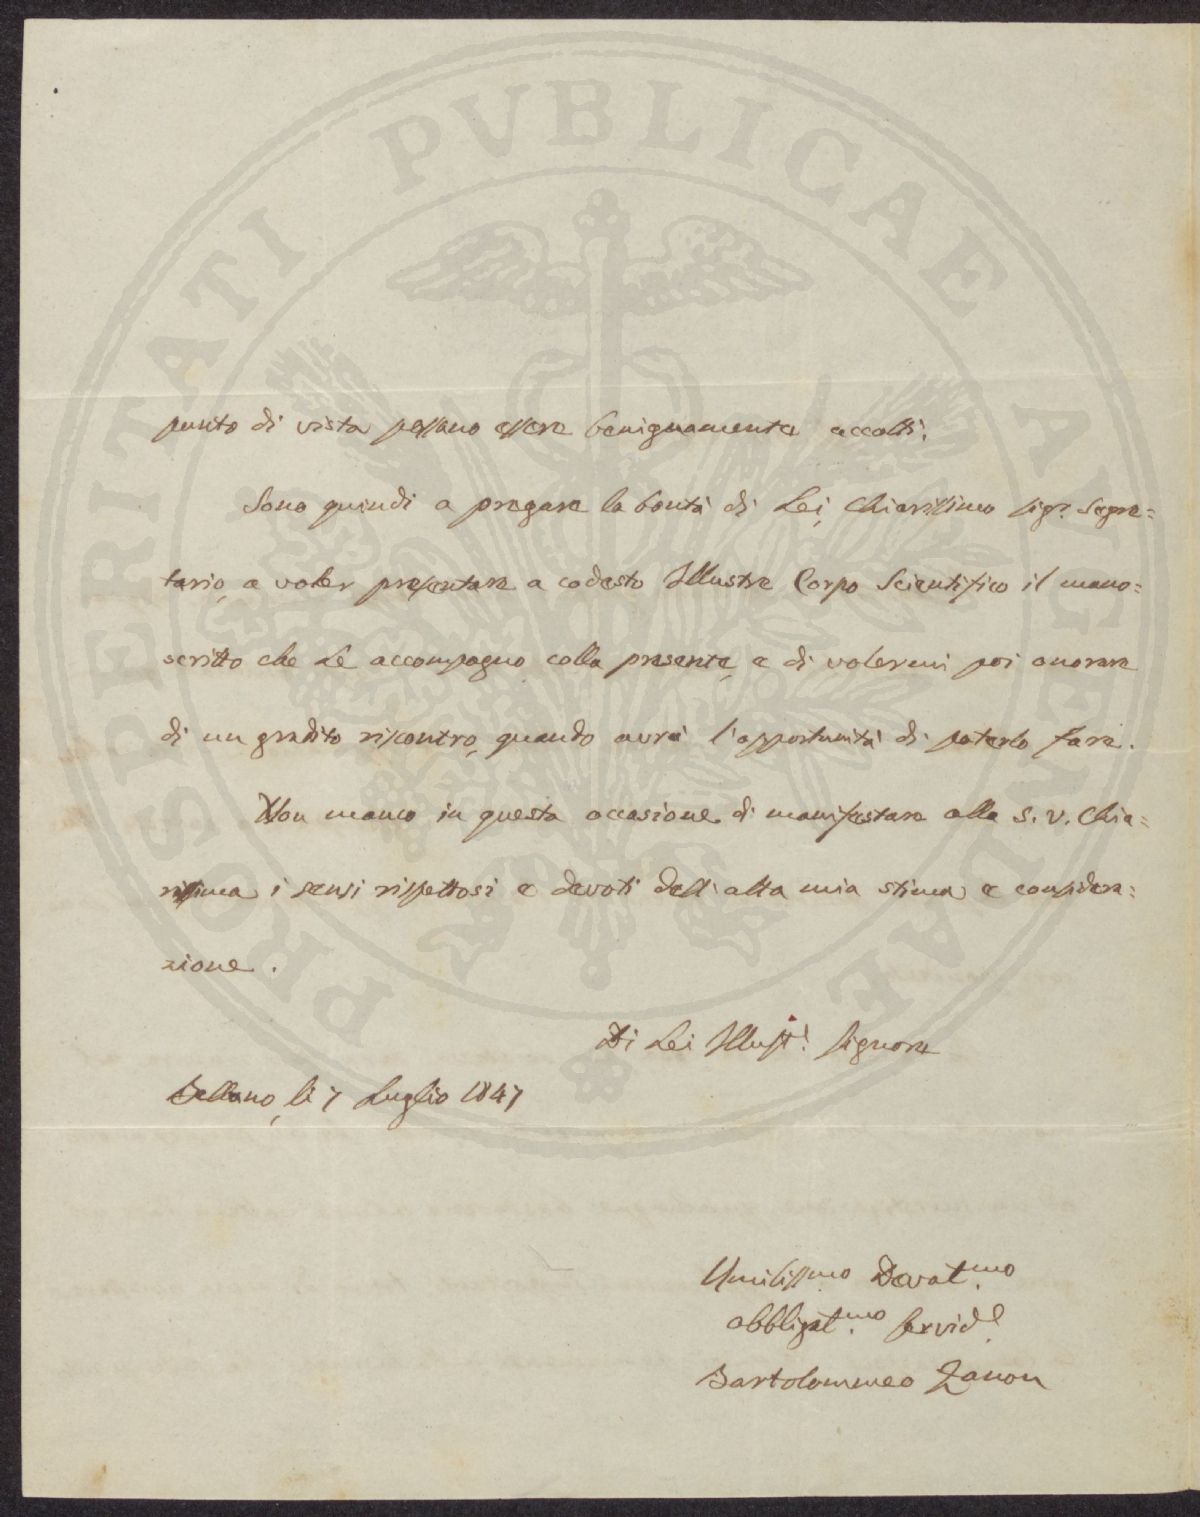 PROSPERITATI PUBLICAE AUGENDAE
punto di vista possano essere benignamente accolti.
Sono quindi a pregare la bontà di Lei, Chiarissimo Sigr. Segre=
tario, a voler presentare a codesto Illustre Corpo Scientifico il mano=
scritto che Le accompagno colla presente, e di volermi poi onorare
di un gradito riscontro, quando avrà l'opportunità di poterlo fare.
Non manco in questa occasione di manifestare alla S. V. Chia=
rissima i sensi rispettosi e devoti dell'alta mia stima e considera=
zione.
Di Lei Illust.e Signore
Belluno, li 7 Luglio 1847
Umilissmo Devotmo
obbligatmo Servide
Bartolommeo Zanon